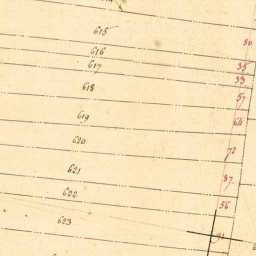 615 50
616 35
617 33
618 57
619 66
620 72
621 87
622 56
623